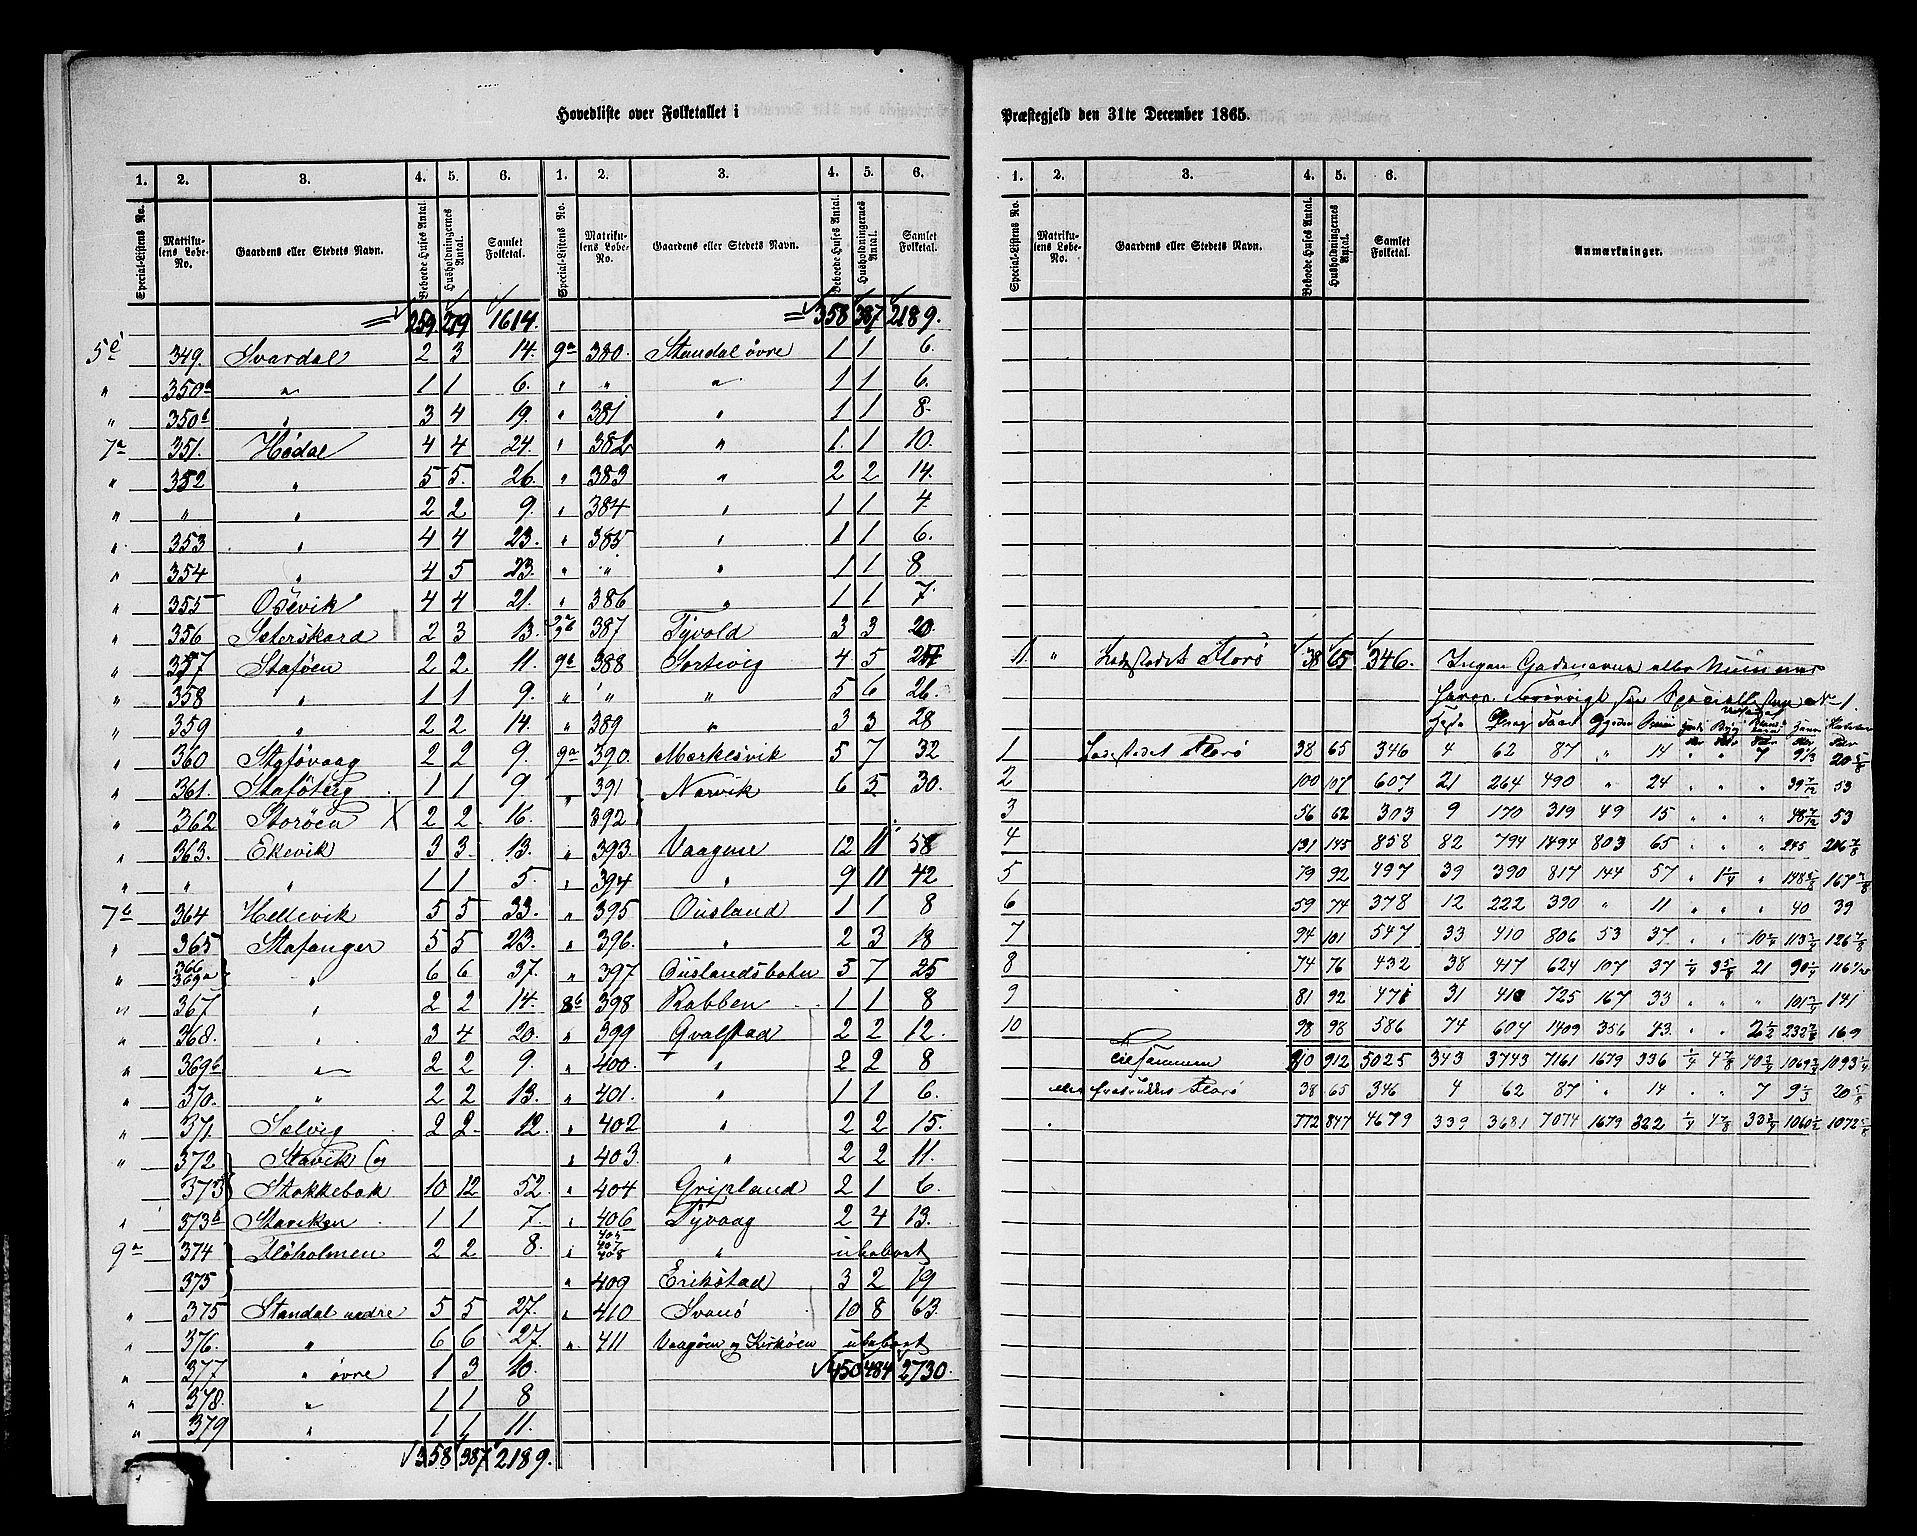 Hovedliste over Folketallet i
1. 2. 3. 4. 5. 6. 1. 2. 3. 4. 5. 6.
Special-Listens No. Matriku-lens Løbe-No. Gaardens eller Stedets Navn. Beboede Huses Antal. Husholdningernes Antal. Samlet Folketal. Special-Listens No. Matriku-lens Løbe-No. Gaardens eller Stedets Navn. Beboede Huses Antal. Husholdningernes Antal. Samlet Folketal.
259 279 1614. 358 387 2189.
349. Svardal 2 3 14. 9a 380. Standal øvre 1 1 6.
" 350a " 1 1 6. " " " 1 1 6.
" 350b " 3 4 19. " 381 " 1 1 8.
7a 351. Hødal 4 4 24. " 382 " 1 1 10.
" 352 " 5 5. 26. " 383 " 2 2 14.
" " " 2 2 9. " 384 " 1 1 4.
" 353 " 4 4 23. " 385 " 1 1 6.
" 354 " 4 5 23. " " " 1 1 8.
" 355 Osevik 4 4 21. " 386 " 1 1 7.
" 356 Seterskard 2 3 13. 387 Tyvold 3 3 20.
" 357 Staføen 2 2 11. 9a 388 Sortevig 4 5
" 358 " 1 1 9. " " " 5 6 26.
" 359 " 2 2 14. " 389 " 3 3 28
" 360 2 2 9. 9a 390. Mærkesvik 5 7 32
" 361. 1 1 9. " 391 Norvik 6 5 30.
" 362 Storøen X 2 2. 16. 392
" 363. Ekevik 3 3. 13. " 393. Vaagene 12 11 58
" " " 1 1 5. " 394 " 9 11 42
7b 364 Hellevik 5 5 33. " 395 Ousland 1 1 8
" 365 Stafanger 5 5 23. " 396. " 2 3 18
" 366 369a " 6 6 37. " 397 Ouslandsbotn 5 7 25
" 367 " 2 2 14. 8b 398 Rabben 1 1 8
" 368. " 3 4 20. " 399 Gvalstad 2 2 12.
" 369b " 2 2 9. " 400. " 2 2 8
" 370. " 2 2 13. " 401. " 1 1 6.
" 371. Solvig 2 2 12. " 402 " 2 2 15.
" 372 Stavik og " 403. " 2 2 11.
373 Stokkebak 10 12 52. " 404 Gripland 2 1 6.
" 373b Staviken 1 1 7. " 406 Tyvaag 2 4 13.
9a 374 Fløholmen 2 2 8. " 405 407 408 " ubeboet
375 " 409 Erikstad 3 2 19
" 375 Standal nedre 5 5 27. " 410 Svanø 10 8 63.
" 376. " 6 6 27. " 411 Vaagøen og Kirkøen ubeboet
" 377 " øvre 1 3 10. 450 484 2730.
" 378. " 1 1 8
" 379 " 1 1 11.
358 387 2189.
Præstegjeld den 31te December 1865.
1. 2. 3. 4. 5. 6.
Special-Listens No. Matriku-lens Løbe-No. Gaardens eller Stedets Navn. Beboede Huses Antal. Husholdningernes Antal. Samlet Folketal. Anmærkninger.
11. " Ladestedet Florø 38 65 346. Ingen Gadenavne eller Nummer
1 Ladestedet Florø 38 65 346 4 62 87 " 14 " " 7 9 1/3 20 5/8
2 100 107 607 21 264 490 " 24 " " " 39 7/12 53
3 56 62 303 9 170 319 49 15 " " " 48 7/12 53
4 131 145 858 82 794 1494 803 65 " " " 245
5 79 92 497 39 390 817 144 57 " 1 1/4 "
6 59 74 378 12 222 390 " 11 " " " 40 39
7 94 101 547 33 410 806 53 37 " "
8 74 76 432 38 417 624 107 37 1/4 3 5/8 21
9 81 92 471 31 410 725 167 33 " " " 141
10 98 98 586 74 604 1409 356 43 " " 169
Tilsammen 810 912 5025 343 3743 7161 1679 336 1/4 4 7/8
38 65 346 4 62 87 " 14 " " 7 9 1/3 20 5/8
772 847 4679 339 3681 7074 1679 322 1/4 4 7/8